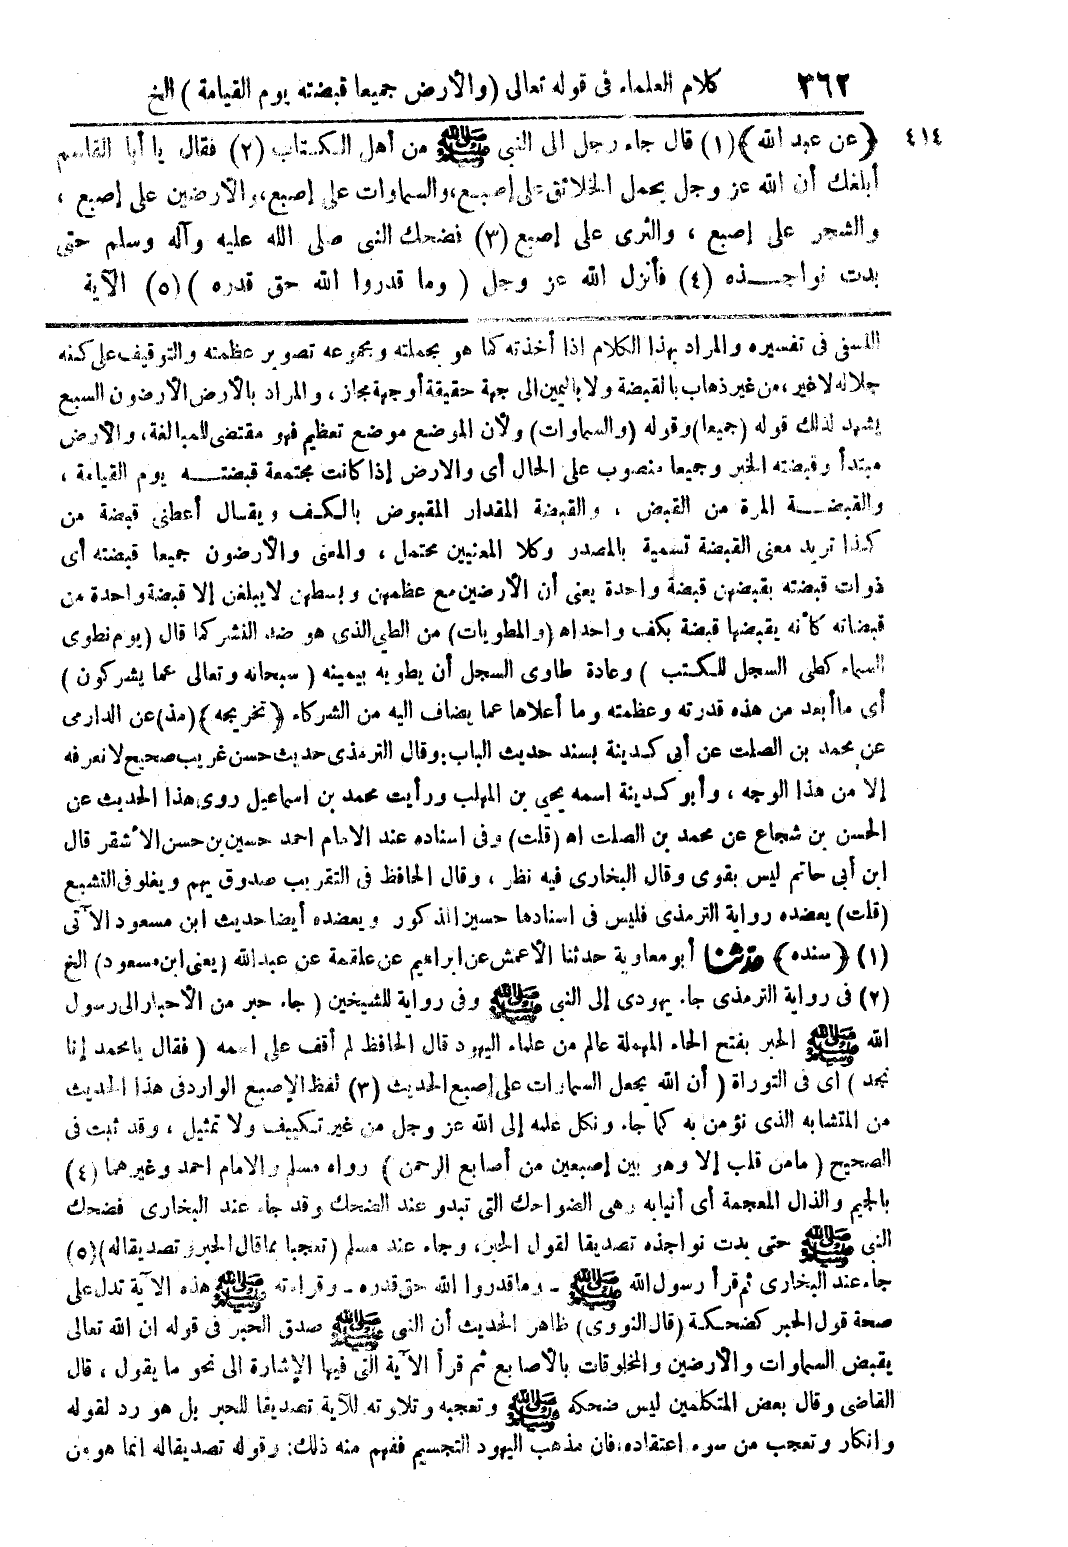 ٣٦٢ كلام العلماء فى قوله تعالى (والأرض جميعا قبضته يوم القيامة) الخ
٤١٤ ﴿عن عبد الله﴾(١) قال جاء رجل الى النبى ﷺ من أهل الكتاب (٢) فقال يا أبا القاسم
أبلغك أن الله عز وجل يحمل الخلائق على إصبع، والسماوات على إصبع، والأرضين على إصبع ،
والشجر على إصبع ، والثرى على إصبع (٣) فضحك النبى صلى الله عليه وآله وسلم حتى
بدت نواجـــذه (٤) فأنزل الله عز وجل ( وما قدروا الله حق قدره ) (٥) الآية
النسفى فى تفسيره والمراد بهذا الكلام اذا أخذته كما هو بجملته ومجموعه تصوير عظمته والتوقيف على كنه
جلاله لا غير ، من غير ذهاب بالقبضة ولا باليمين الى جهة حقيقة أو جهة مجاز ، والمراد بالأرض الأرضون السبع
يشهد لذلك قوله (جميعا) وقوله (والسماوات) ولأن الموضع موضع تعظيم فهو مقتضى للمبالغة، والأرض
مبتدأ وقبضته الخبر وجميعا منصوب على الحال أى والارض إذا كانت مجتمعة قبضتـــه يوم القيامة ،
والقبضـــة المرة من القبض ، والقبضة المقدار المقبوض بالكف ويقال أعطنى قبضة من
كذا تريد معنى القبضة تسمية بالمصدر وكلا المعنيين محتمل ، والمعنى والأرضون جميعا قبضته أى
ذوات قبضته يقبضهن قبضة واحدة يعنى أن الأرضين مع عظمهن وبسطهن لا يبلغن إلا قبضة واحدة من
قبضاته كأنه يقبضها قبضة بكف واحداه (والمطويات) من الطى الذى هو ضد النشر كما قال (يوم نطوى
السماء كطى السجل للكتب ) وعادة طاوى السجل أن يطويه بيمينه ( سبحانه وتعالى عما يشركون )
أى ما أبعد من هذه قدرته وعظمته وما أعلاها عما يضاف اليه من الشركاء ﴿تخريجه﴾ (مذ) عن الدارمى
عن محمد بن الصلت عن أبى كدينة بسند حديث الباب: وقال الترمذى حديث حسن غريب صحيح لا نعرفه
إلا من هذا الوجه ، وأبو كدينة اسمه يحيى بن المهلب ورأيت محمد بن اسماعيل روى هذا الحديث عن
الحسن بن شجاع عن محمد بن الصلت اه (قلت) وفى اسناده عند الامام احمد حسين بن حسن الأشقر قال
ابن أبى حاتم ليس بقوى وقال البخارى فيه نظر ، وقال الحافظ فى التقريب صدوق يهم ويغلو فى التشيع
(قلت) يعضده رواية الترمذى فليس فى اسنادها حسين المذكور ويعضده أيضا حديث ابن مسعود الآتى
(١) ﴿سنده﴾ حدثنا أبو معاوية حدثنا الأعمش عن ابراهيم عن علقمة عن عبد الله (يعنى ابن مسعود) الخ
(٢) فى رواية الترمذى جاء يهودى إلى النبى ﷺ وفى رواية للشيخين ( جاء حبر من الأحبار الى رسول
الله ﷺ الحبر بفتح الحاء المهملة عالم من علماء اليهود قال الحافظ لم أقف على اسمه ( فقال يا محمد إنا
نجد ) اى فى التوراة ( أن الله يجعل السماوات على إصبع الحديث (٣) لفظ الإصبع الوارد فى هذا الحديث
من المتشابه الذى نؤمن به كما جاء ونكل علمه إلى الله عز وجل من غير تكييف ولا تمثيل ، وقد ثبت فى
الصحيح ( مامن قلب إلا وهو بين إصبعين من أصابع الرحمن ) رواه مسلم والامام احمد وغيرهما (٤)
بالجيم والذال المعجمة أى أنيابه وهى الضواحك التى تبدو عند الضحك وقد جاء عند البخارى فضحك
النبى ﷺ حتى بدت نواجذه تصديقا لقول الحبر، وجاء عند مسلم (تعجبا مما قال الحبر وتصديقا له) (٥)
جاء عند البخارى ثم قرأ رسول الله ﷺ ـ وما قدروا الله حق قدره ـ وقراءته ﷺ هذه الآية تدل على
صحة قول الحبر كضحكة (قال النووى) ظاهر الحديث أن النبى ﷺ صدق الحبر فى قوله ان الله تعالى
يقبض السماوات والأرضين والمخلوقات بالأصابع ثم قرأ الآية التى فيها الإشارة الى نحو ما يقول ، قال
القاضى وقال بعض المتكلمين ليس ضحكه ﷺ وتعجبه وتلاوته للآية تصديقا للحبر بل هو رد لقوله
وانكار وتعجب من سوء اعتقاده، فان مذهب اليهود التجسيم ففهم منه ذلك: وقوله تصديقا له انما هو من